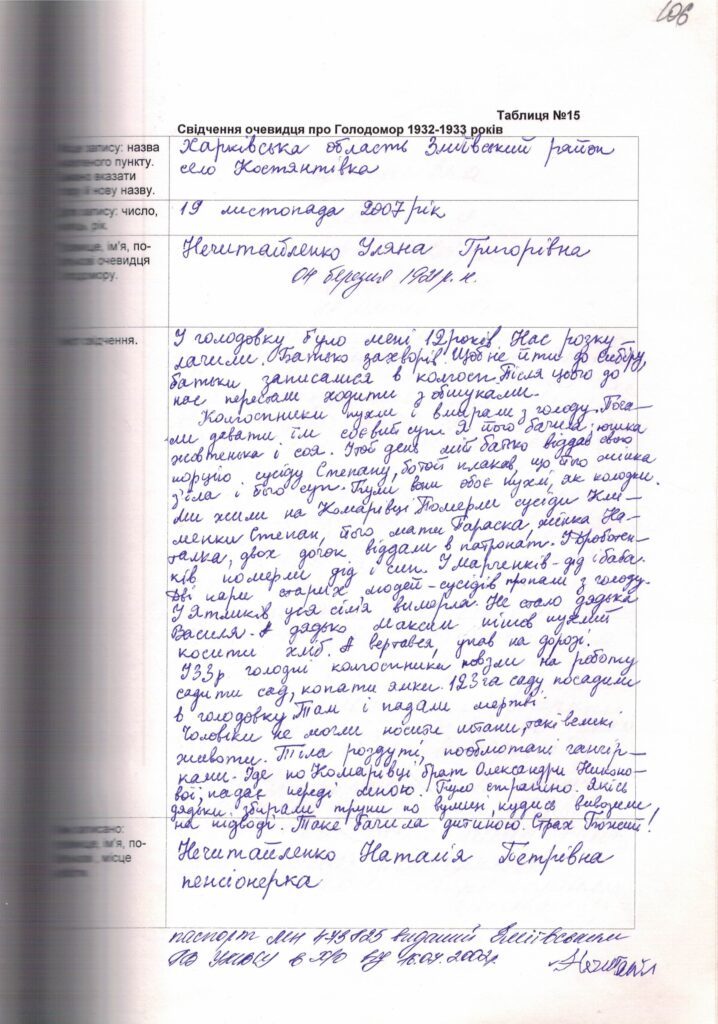 106
Таблиця №15
Свідчення очевидця про Голодомор 1932-1933 років
запису: назва
пункту.
вказати
нову назву.
Харківська область Зміївський район
село Костянтівка
запису: число,
рік.
19 листопада 2007 рік
ім'я, по-
очевидця
Голодомору.
Нечитайленко Уляна Григорівна
04 березня 1921 р. н.
свідчення.
У голодовку було мені 12 років. Нас розку-
лачили. Батько захворів. Щоб не йти до Сибіру,
батьки записалися в колгосп. Після цього до
нас перестали ходити з обшуками.
Колгоспники пухли і вмирали з голоду. Поча-
ли давати їм соєвий суп. Я його бачила: юшка
жовтенька і соя. І той день мій батько віддав свою
порцію сусіду Степану, бо той плакав, що його жінка
з'їла і його суп. Були вони обоє пухлі, як колодки.
Ми жили на Комарівці. Померли сусіди Кли-
менки Степан, його мати Параска, жінка На-
талка, двох дочок віддали в патронат. У
ків померли дід і син. У Марченків - дід і баба.
Дві пари старих людей - сусідів пропали з голоду.
У Ятликів уся сім'я вимерла. Не стало дядька
Василя. А дядько Максим пішов пухлий
косити хліб. А вертався, упав на дорозі.
У 33 р голодні колгоспники повзли на роботу
садити сад, копати ямки. 123 га саду посадили
в голодовку. Там і падали мертві.
Чоловіки не могли носити штани, такі великі
животи. Тіла роздуті, пообмотані ганчір-
ками. Іде по Комарівці брат Олександри Никоно-
вої, падає переді мною. Було страшно. Якісь
дядьки збирали трупи по вулиці, кудись вивозили
на підводі. Таке бачила дитиною. Страх Божий!
записано:
ім'я, по-
місце
Нечитайленко Наталія Петрівна
пенсіонерка
паспорт МН 473825 виданий Зміївським
РВ УМВСУ в Х/О